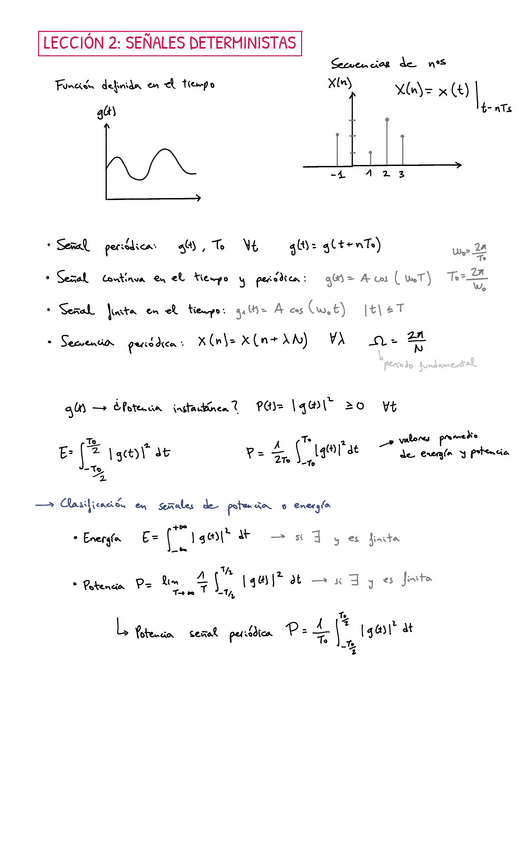 LECCIÓN 2: SEÑALES DETERMINISTAS
Función definida en el tiempo
g(t)
Secuencias de nos
X(n)
X(n) = x(t) | t-nTs
-1 1 2 3
• Señal periódica: g(t), To ∀t g(t) = g(t+nTo)
Wo = 2π/To
• Señal contínua en el tiempo y periódica: g(t) = A cos (WoT) To = 2π/Wo
• Señal finita en el tiempo: g1(t) = A cos (Wot) |t| ≤ T
• Secuencia periódica: X(n) = X(n+λN) ∀λ Ω = 2π/N
periodo fundamental
g(t) → ¿Potencia instantánea? P(t) = |g(t)|² ≥ 0 ∀t
E = ∫_{-To/2}^{To/2} |g(t)|² dt P = 1/2To ∫_{-To}^{To} |g(t)|² dt → valores promedio
de energía y potencia
→ Clasificación en señales de potencia o energía
• Energía E = ∫_{-∞}^{+∞} |g(t)|² dt → si ∃ y es finita
• Potencia P = lim_{T→∞} 1/T ∫_{-T/2}^{T/2} |g(t)|² dt → si ∃ y es finita
↳ Potencia señal periódica P = 1/To ∫_{-To/2}^{To/2} |g(t)|² dt